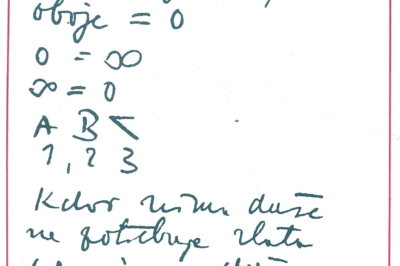 oboje = 0
0 = ∞
∞ = 0
A B <
1, 2 3
Kdor nima duše
ne potrebuje zlata